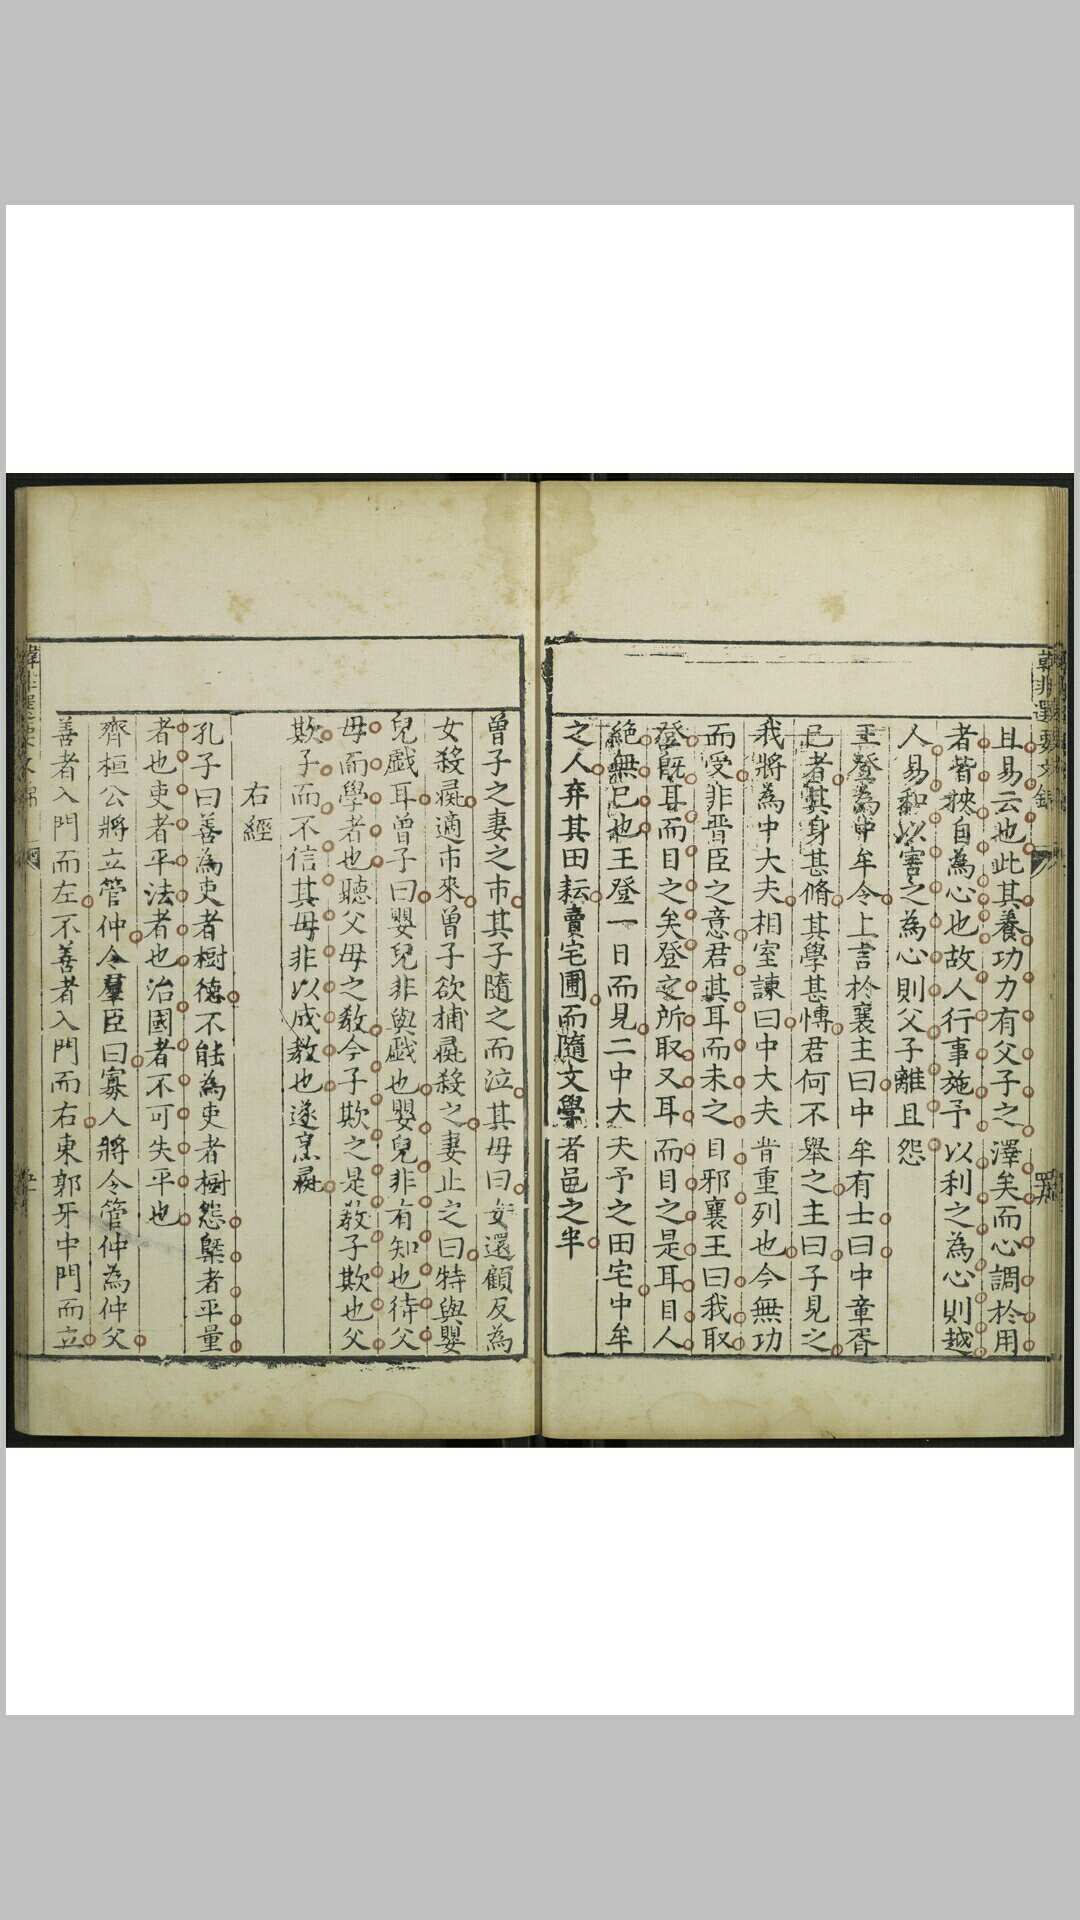 且易云也此其養功力有父子之澤矣而心調於用
者皆挾自為心也故人行事施予以利之為心則越
人易和以害之為心則父子離且怨
王登為中牟令上言於襄主曰中牟有士曰中章胥
己者其身甚脩其學甚愽君何不舉之主曰子見之
我將為中大夫相室諫曰中大夫晋重列也今無功
而受非晋臣之意君其耳而未之目邪襄王曰我取
登既耳而目之矣登之所取又耳而目之是耳目人
絶無已也王登一日而見二中大夫予之田宅中牟
之人弃其田耘賣宅圃而隨文學者邑之半
曾子之妻之市其子隨之而泣其母曰女還顧反為
女殺彘適市來曾子欲捕彘殺之妻止之曰特與嬰
兒戯耳曾子曰嬰兒非與戯也嬰兒非有知也待父
母而學者也聽父母之教今子欺之是教子欺也父
欺子而不信其母非以成教也遂烹彘
右經
孔子曰善為吏者樹德不能為吏者樹怨槩者平量
者也吏者平法者也治國者不可失平也
齊桓公將立管仲令羣臣曰寡人將令管仲為仲父
善者入門而左不善者入門而右東郭牙中門而立